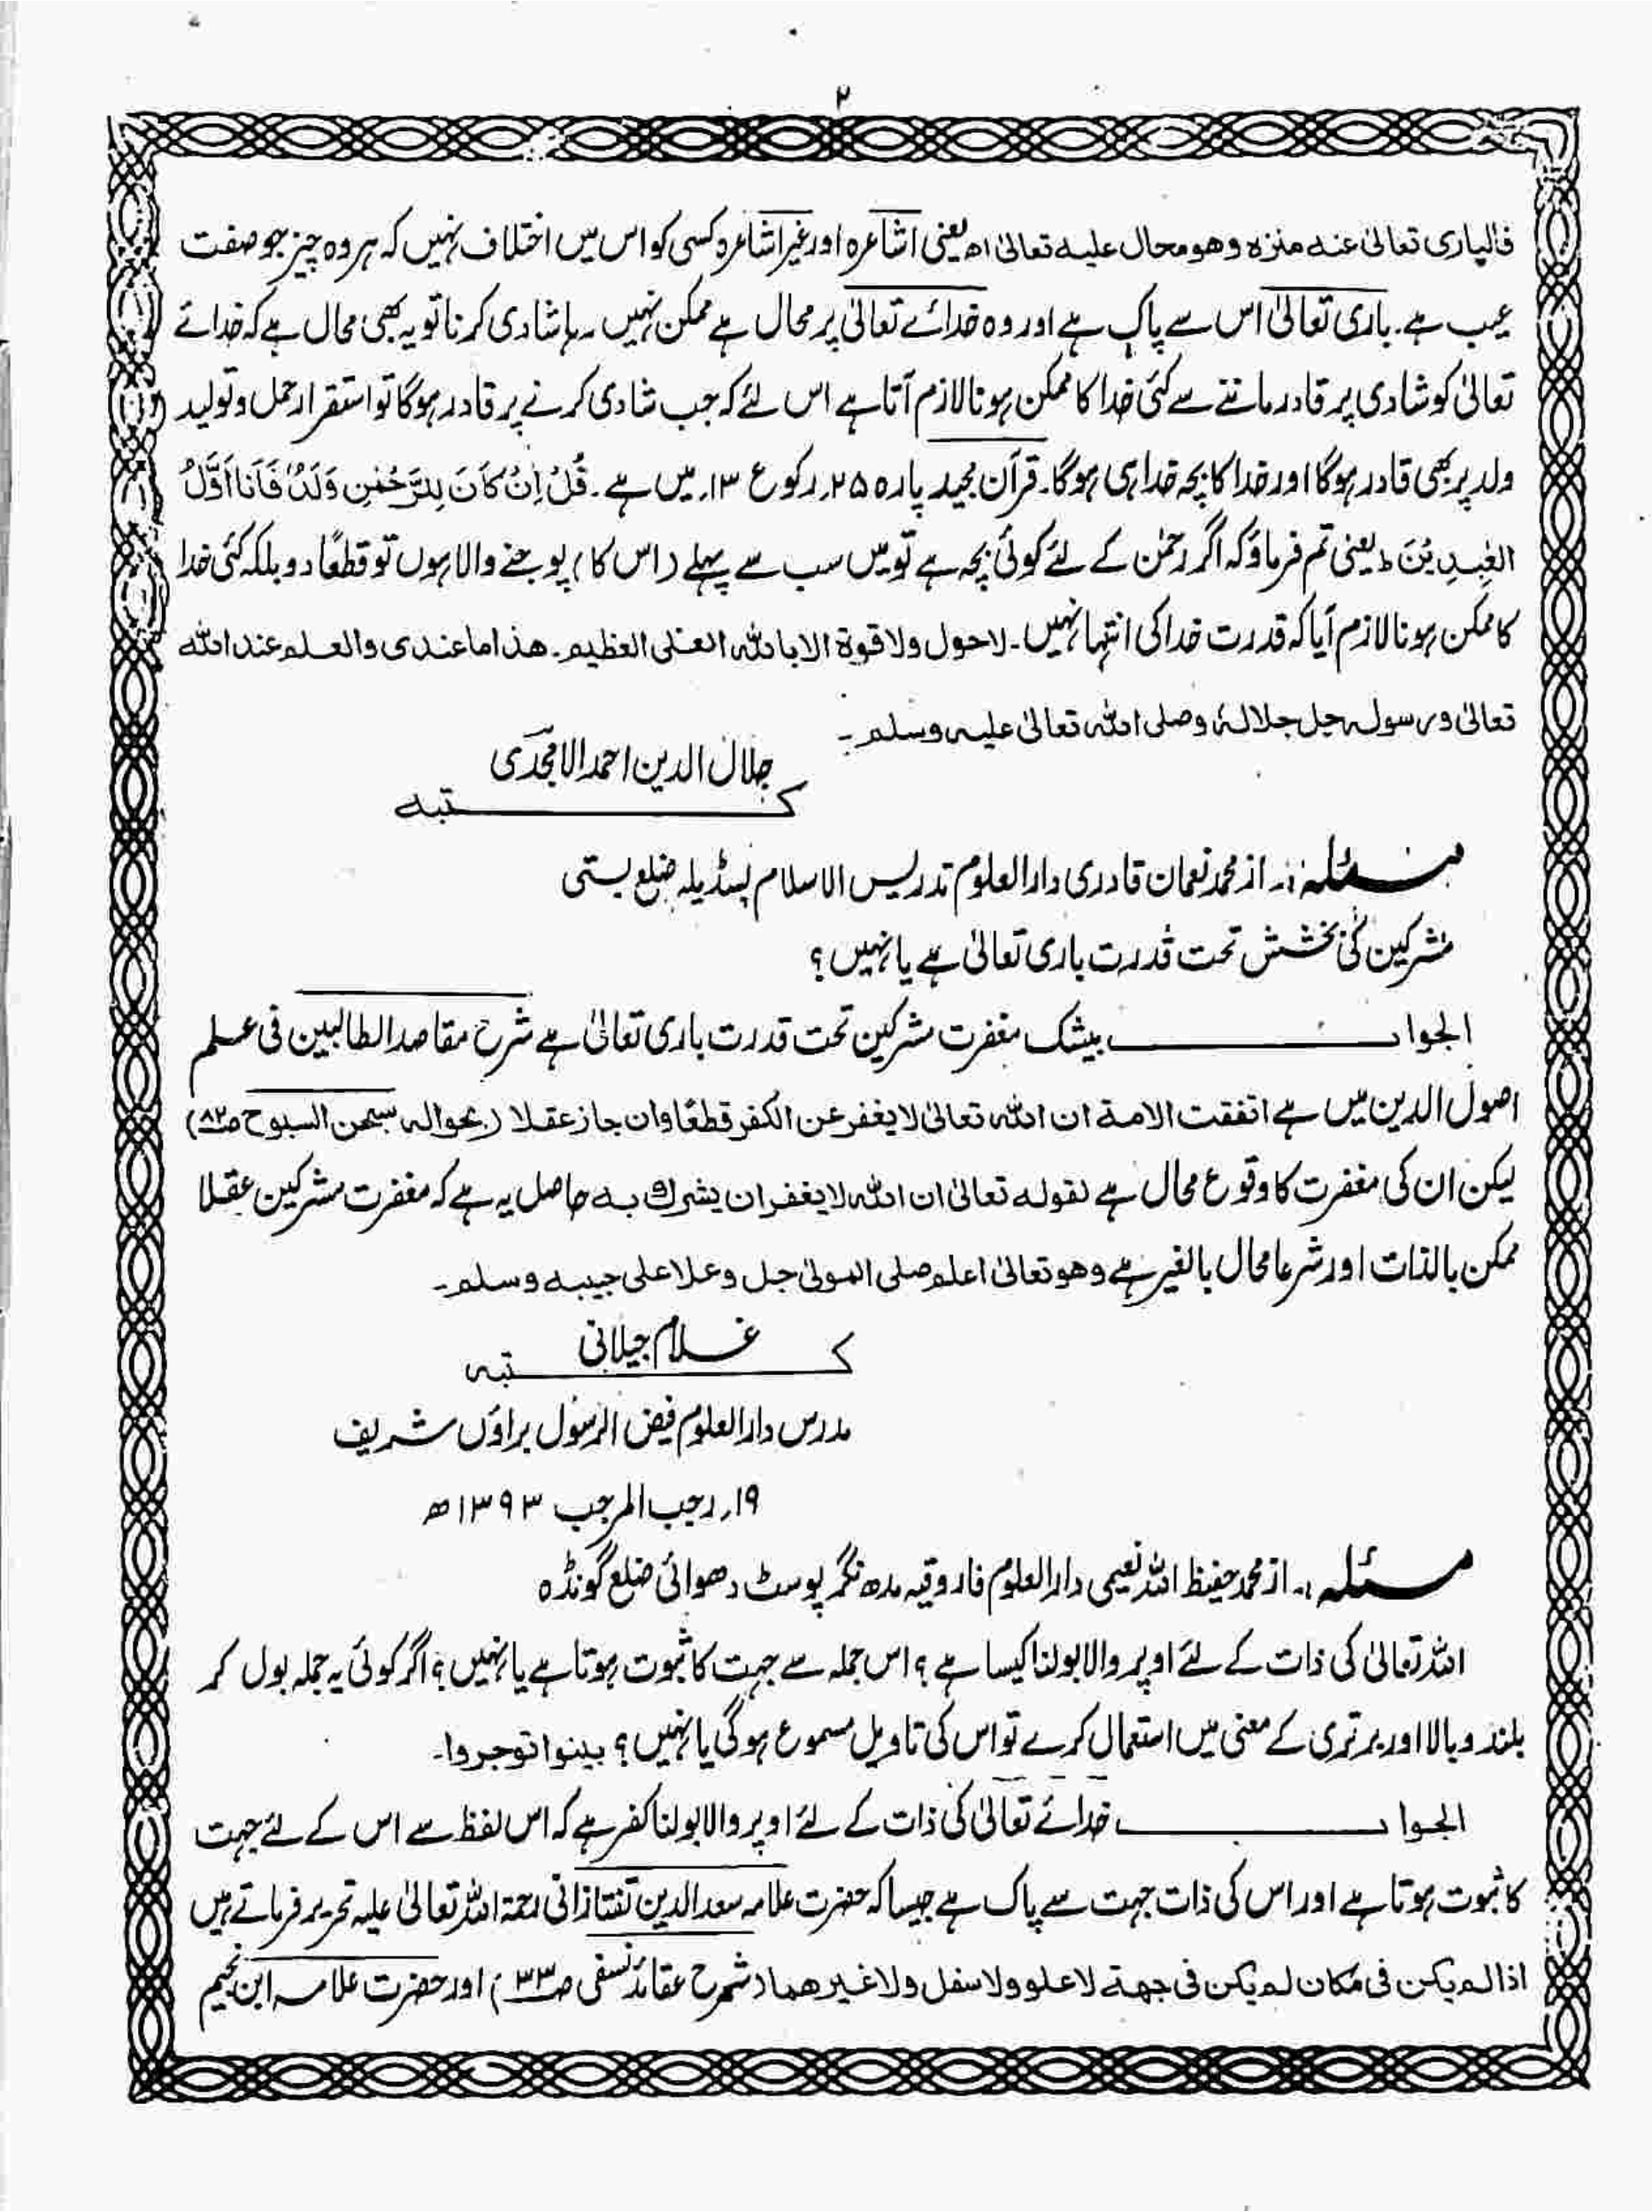 ۲
فالباری تعالیٰ عنہ منزہ وھو محال علیہ تعالیٰ اھ یعنی اشاعرہ اور غیر اشاعرہ کسی کو اس میں اختلاف نہیں کہ ہر وہ چیز جو صفت
عیب ہے۔ باری تعالیٰ اس سے پاک ہے اور وہ خدائے تعالیٰ پر محال ہے ممکن نہیں۔ رہا شادی کرنا تو یہ بھی محال ہے کہ خدائے
تعالیٰ کو شادی پر قادر ماننے سے کئی خدا کا ممکن ہونا لازم آتا ہے اس لئے کہ جب شادی کرنے پر قادر ہوگا تو استقرار حمل و تولید
ولد پر بھی قادر ہوگا اور خدا کا بچہ خدا ہی ہوگا۔ قرآن مجید پارہ ۲۵ رکوع ۱۳ میں ہے۔ قُلْ اِنْ كَانَ لِلرَّحْمٰنِ وَلَدٌ فَاَنَا اَوَّلُ
الْعٰبِدِيْنَ۔ یعنی تم فرماؤ کہ اگر رحمٰن کے لئے کوئی بچہ ہے تو میں سب سے پہلے (اس کا) پوجنے والا ہوں تو قطعًا دو بلکہ کئی خدا
کا ممکن ہونا لازم آیا کہ قدرت خدا کی انتہا نہیں۔ لاحول ولا قوۃ الا باللہ العلی العظیم۔ ھذا ما عندی والعلم عند اللہ
تعالیٰ ورسولہ جل جلالہٗ وصلی اللہ تعالیٰ علیہ وسلم۔
جلال الدین احمد الامجدی
کتبہ
مسئلہ:۔ از محمد نعمان قادری دارالعلوم تدریس الاسلام بسڈیلہ ضلع بستی
مشرکین کی بخشش تحت قدرت باری تعالیٰ ہے یا نہیں؟
الجواب بیشک مغفرت مشرکین تحت قدرت باری تعالیٰ ہے شرح مقاصد الطالبین فی علم
اصول الدین میں ہے اتفقت الامۃ ان اللہ تعالیٰ لا یغفر عن الکفر قطعًا وان جاز عقلا (بحوالہ سبحٰن السبوح ص۸۲)
لیکن ان کی مغفرت کا وقوع محال ہے لقولہ تعالیٰ ان اللہ لا یغفر ان یشرک بہ حاصل یہ ہے کہ مغفرت مشرکین عقلا
ممکن بالذات اور شرعا محال بالغیر ہے وھو تعالیٰ اعلم صلی المولیٰ جل وعلا علی حبیبہ وسلم۔
غلام جیلانی
کتبہ
مدرس دارالعلوم فیض الرسول براؤں شریف
۱۹ رجب المرجب ۱۳۹۳ھ
مسئلہ:۔ از محمد حفیظ اللہ نعیمی دارالعلوم فاروقیہ مدھ نگر پوسٹ دھوائی ضلع گونڈہ
اللہ تعالیٰ کی ذات کے لئے اوپر والا بولنا کیسا ہے؟ اس جملہ سے جہت کا ثبوت ہوتا ہے یا نہیں؟ اگر کوئی یہ جملہ بول کر
بلند و بالا اور برتری کے معنی میں استعمال کرے تو اس کی تاویل مسموع ہوگی یا نہیں؟ بینوا توجروا۔
الجواب خدائے تعالیٰ کی ذات کے لئے اوپر والا بولنا کفر ہے کہ اس لفظ سے اس کے لئے جہت
کا ثبوت ہوتا ہے اور اس کی ذات جہت سے پاک ہے جیسا کہ حضرت علامہ سعد الدین تفتازانی رحمۃ اللہ تعالیٰ علیہ تحریر فرماتے ہیں
اذا لم یکن فی مکان لم یکن فی جھۃ لا علو ولا سفل ولا غیرھما (شرح عقائد نسفی ص۳۳) اور حضرت علامہ ابن نجیم